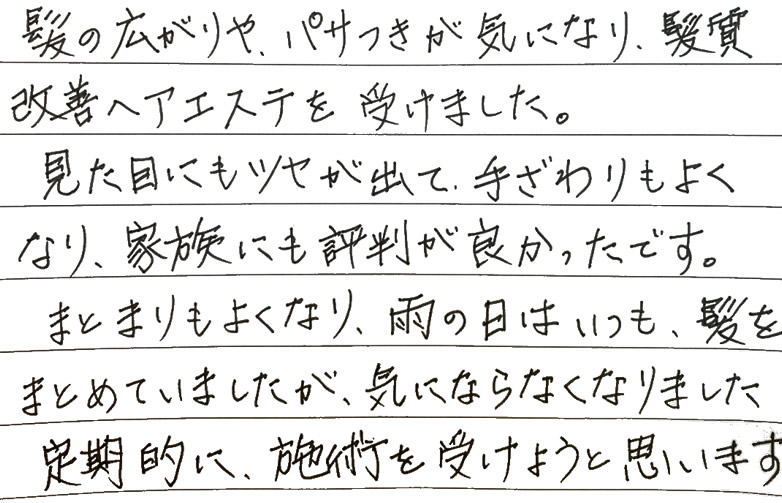 髪の広がりや、パサつきが気になり、髪質
改善ヘアエステを受けました。
見た目にもツヤが出て、手ざわりもよく
なり、家族にも評判が良かったです。
まとまりもよくなり、雨の日はいつも、髪を
まとめていましたが、気にならなくなりました
定期的に、施術を受けようと思います